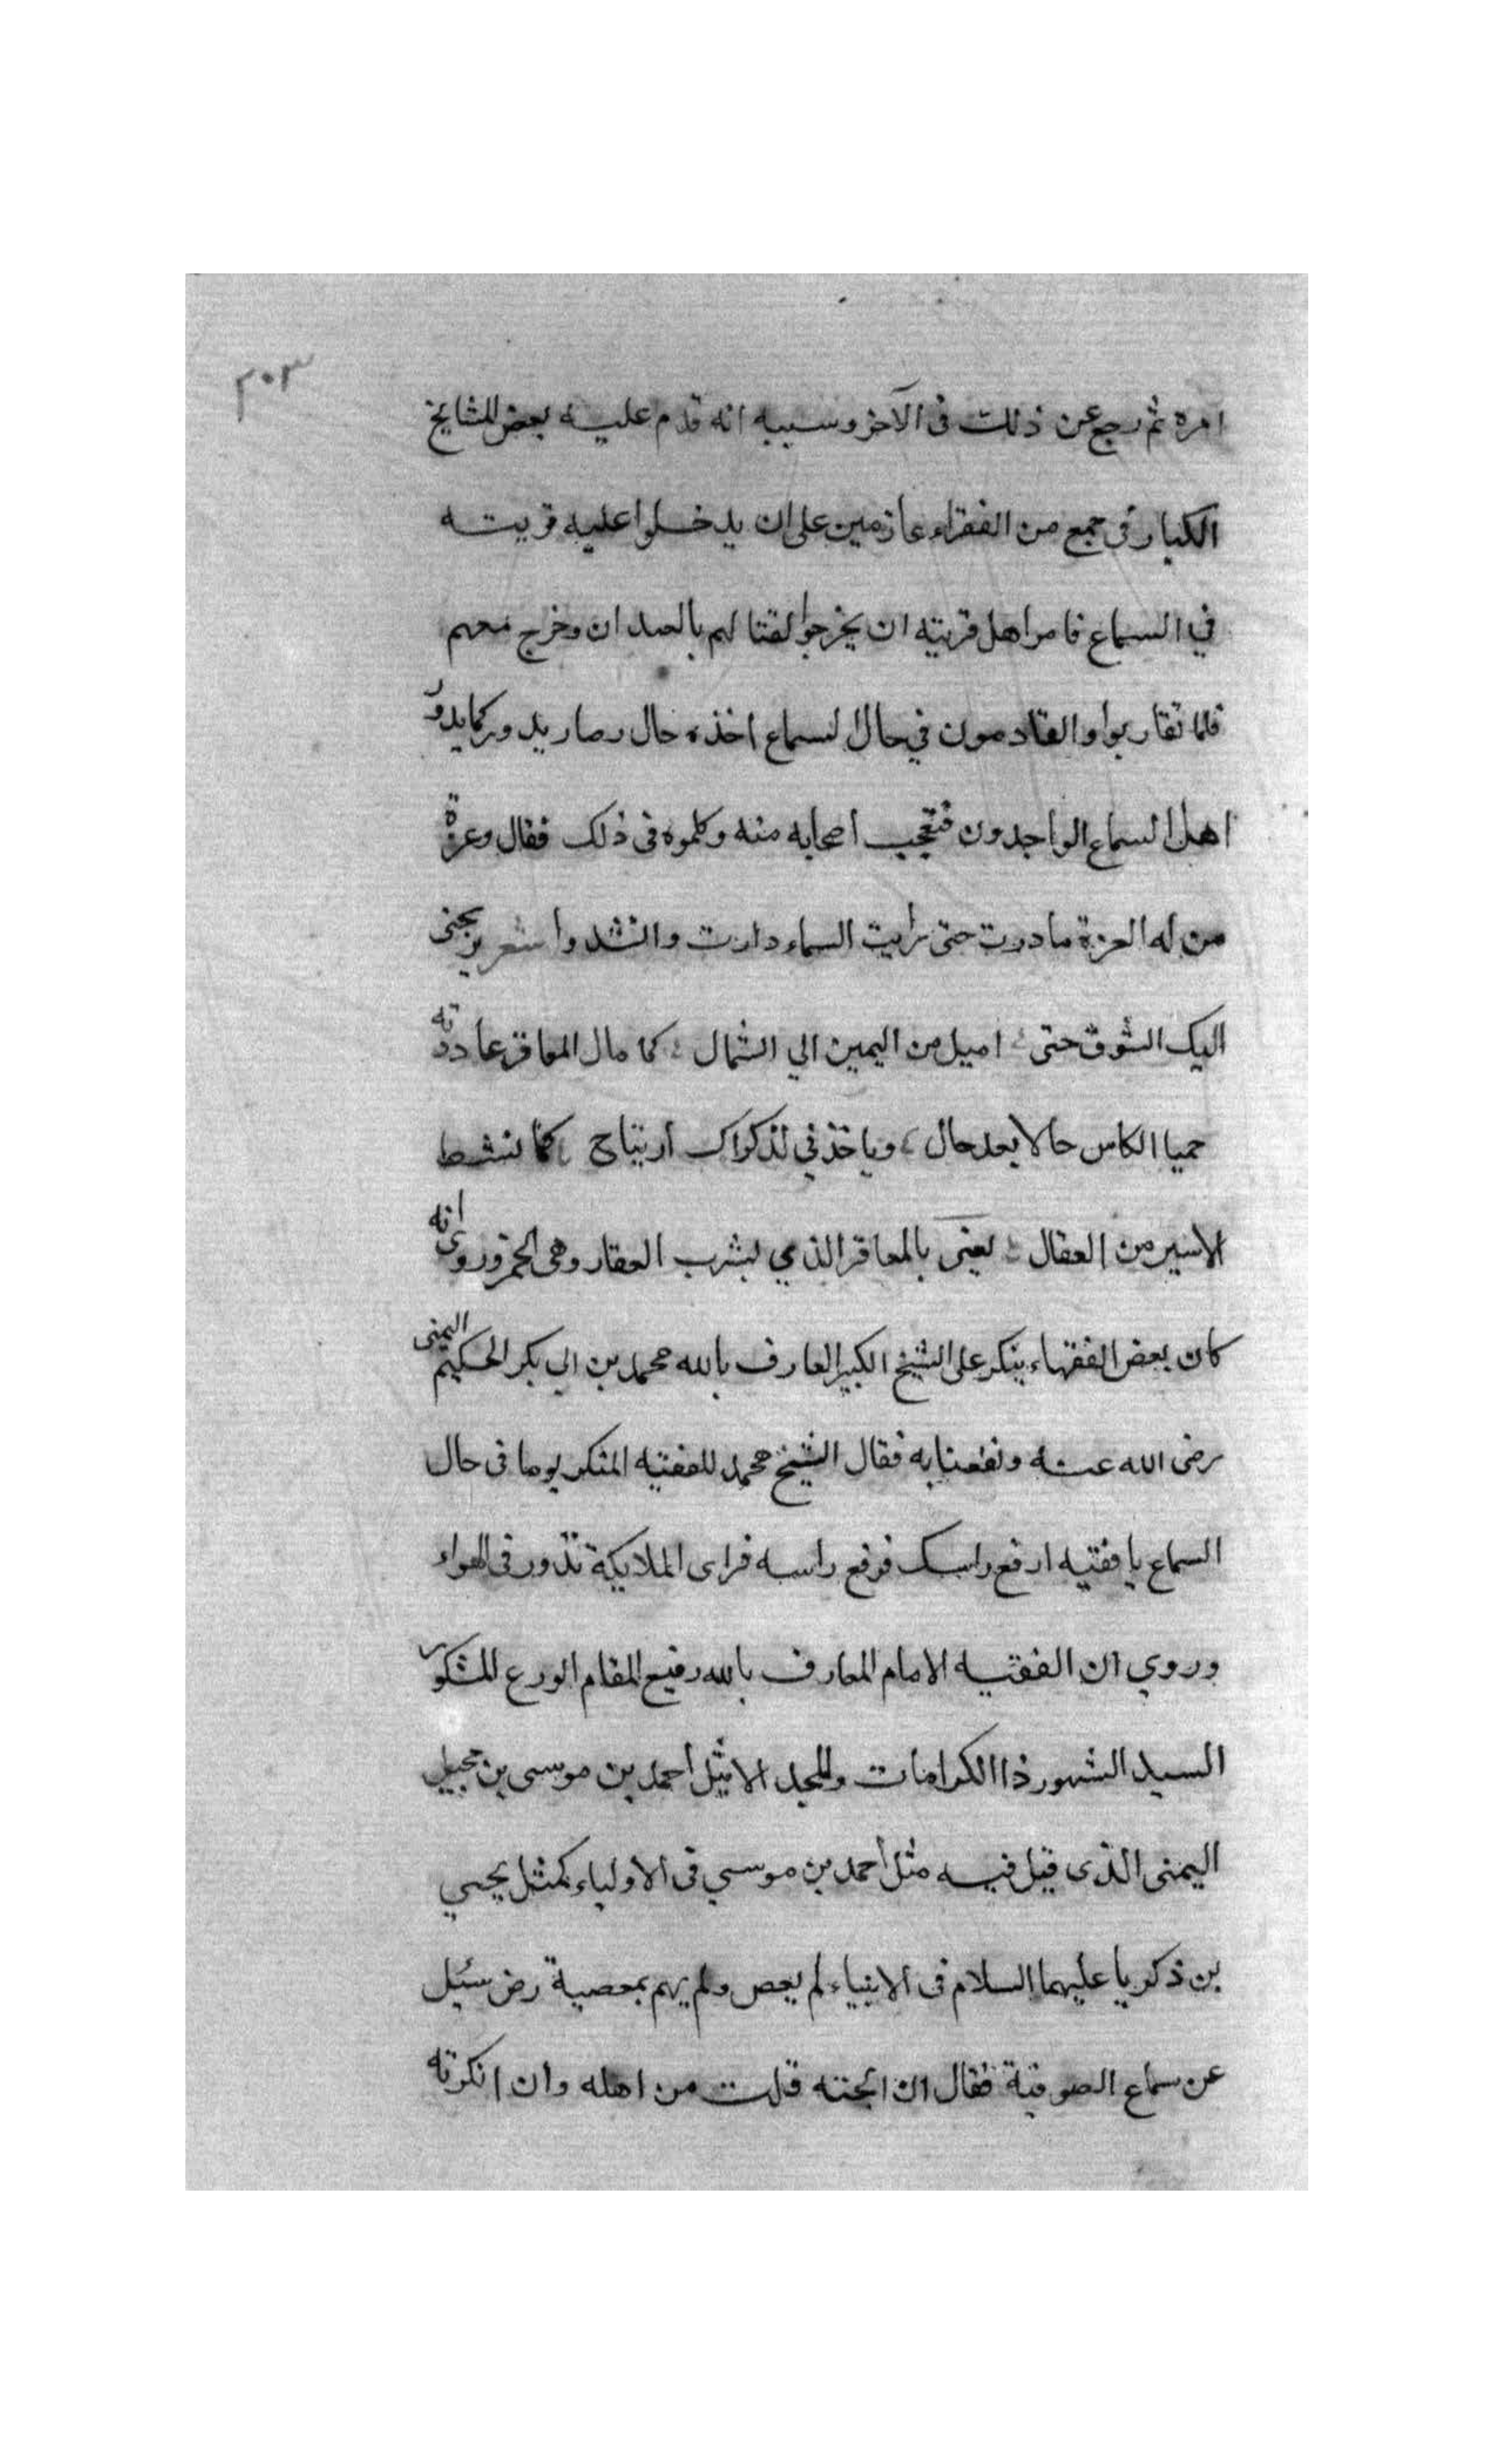 ٣٠٣
امره ثم رجع عن ذلك فى الآخر وسببه انه قدم عليه بعض المشايخ
الكبار فى جمع من الفقراء عازمين على ان يدخلوا عليه قريته
في السماع فامر اهل قريته ان يخرجوا لقتالهم بالعبدان وخرج معهم
فلما تقاربوا والقادمون في حال السماع اخذه حال وصار يدور كما يدور
اهل السماع الواجدون فتعجب اصحابه منه وكلموه فى ذلك فقال وعزة
من له العزة ما درت حتى رايت السماء دارت وانشدوا شعر يرنجنى
اليك الشوق حتى ؛ اميل من اليمين الي الشمال ؛ كما مال المعاقر عاودته
حميا الكاس حالا بعد حال ، وياخذني لذكراك ارتياح ، كما نشط
الاسير من العقال ؛ يعنى بالمعاقر الذي يشرب العقار وهى الخمر وروى انه
كان بعض الفقهاء ينكر على الشيخ الكبير العارف بالله محمد بن ابي بكر الحكيم اليمنى
رضى الله عنه ونفعنا به فقال الشيخ محمد للفقيه المنكر يوما فى حال
السماع يا فقيه ارفع راسك فرفع راسه فراى الملايكة تدور فى الهواء
وروي ان الفقيه الامام العارف بالله رفيع المقام الورع المشكور
السيد الشهور ذا الكرامات والمجد الاثيل احمد بن موسى بن عجيل
اليمنى الذى قيل فيه مثل احمد بن موسي فى الاولياء كمثل يحيى
بن ذكريا عليهما السلام فى الانبياء لم يعص ولم يهم بمعصية رض سئل
عن سماع الصوفية فقال ان ابحته فلت من اهله وان انكرته